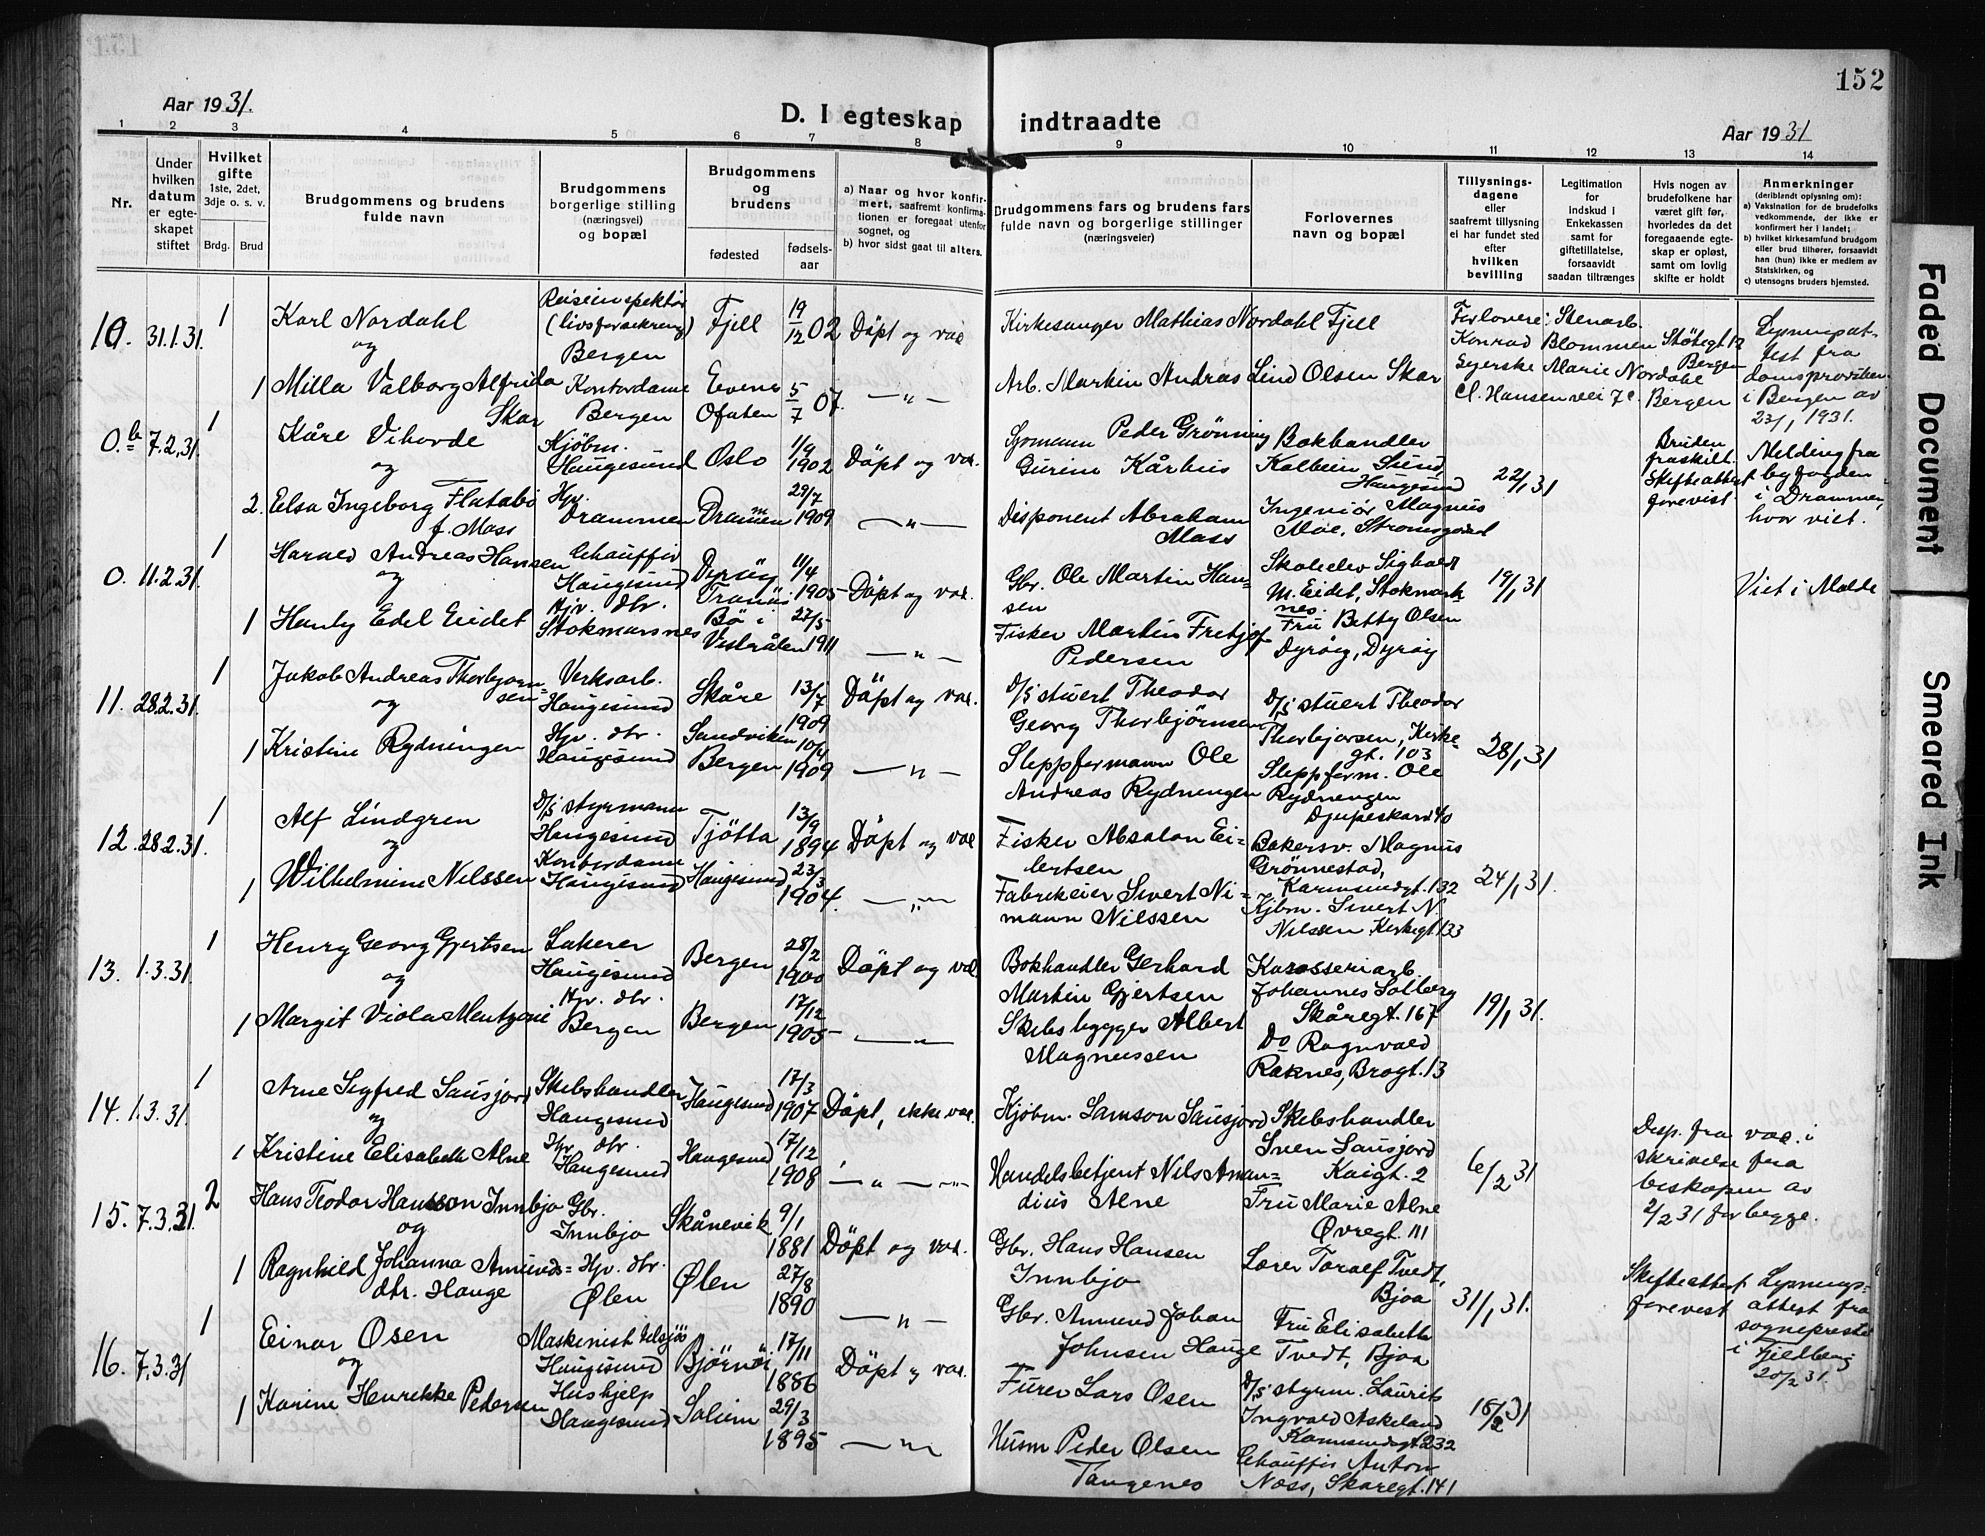 152
Aar 1931.
D. I egteskap indtraadte
Aar 1931
1 2 3 4 5 6 7 8 9 10 11 12 13 14
Nr.
Under hvilken datum er egteskapet stiftet
Hvilket gifte
1ste, 2det, 3dje o. s. v.
Brdg. Brud
Brudgommens og brudens fulde navn
Brudgommens borgerlige stilling (næringsvei) og bopæl
Brudgommens og brudens
fødested
fødselsaar
a) Naar og hvor konfirmert, saafremt konfirmationen er foregaat utenfor sognet, og
b) hvor sidst gaat til alters.
Brudgommens fars og brudens fars fulde navn og borgerlige stillinger (næringsveier)
Forlovernes navn og bopæl
Tillysningsdagene eller saafremt tillysning ei har fundet sted efter hvilken bevilling
Legitimation for indskud i Enkekassen samt for giftetillatelse, forsaavidt saadan tiltrænges
Hvis nogen av brudefolkene har været gift før, hvorledes da det foregaaende egteskap er opløst, samt om lovlig skifte er holdt
Anmerkninger (deriblandt oplysning om):
a) Vaksination for de brudefolks vedkommende, der ikke er konfirmert her i landet;
b) hvilket kirkesamfund brudgom eller brud tilhører, forsaavidt han (hun) ikke er medlem av Statskirken, og
c) utensogns bruders hjemsted.
10. 31.1.31. 1 Karl Nordahl
og
Reiseinspektør (livsforsekring) Bergen
Fjell 19/12 02 Döpt og vac
Kirkesanger Mathias Nordahl Fjell
Forlovere: Stenarb. Konrad Blommen Støtegt 12 Bergen
Syerske Marie Nordahl Cl. Hansen vei 7c Bergen
Lysningattest fra domsprovsten i Bergen av 23/1 1931.
1 Milla Valborg Alfrida Skar
Kontordame Bergen
Evenes Ofoten 5/7 07. —"—
Arb. Martin Andras Lind Olsen Skar
0.b 7.2.31. 1 Kåre Vihovde
og
Kjøbm. Haugesund
Oslo 1/9 1902 Döpt og vac.
Gurine Kårhus
Bokhandler Kolbein Sund, Haugesund
22/1 31
Bruden fraskilt. Skifteattest forevist
Melding fra byfogden i Drammen, hvor viet.
2. Elsa Ingeborg Flatabö f. Mass
Hpv. Drammen
Drammen 29/7 1909 —"—
Disponent Abraham Mass
Ingeniör Magnus Moe, Strömsgodset
0. 11.2.31. 1 Harald Andreas Hansen
og
Chauffør Haugesund
Dyröy Tranöi 11/4 1905 Döpt og vac.
Gbr. Ole Martin Hansen
Skoleelev Sigvald M. Eidet, Stokmarknes.
19/1 31
Viet i Molde
1 Hanly Edel Eidet
Hpv. dtr. Stokmarsnes
Bö i Vesterålen 27/5 1911 —"—
Fisker Martin Fritjof Pedersen
Fru Betty Olsen Dyröy, Dyröy
11. 28.2.31. 1 Jakob Andreas Thorbjornsen
og
Verksarb. Haugesund
Skåre 13/7 1909 Döpt og vac.
D/s stuert Theodor Georg Thorbjörnsen
D/s stuert Theodor Thorbjorsen, Kirkegt. 103
28/1 31
1 Kristine Rydningen
Hpv. dtr. Haugesund
Sandviken Bergen 10/4 1909 —"—
Sleppformann Ole Andreas Rydningen
Sleppform. Ole Rydningen Djupaskard 40
12. 28.2.31. 1 Alf Lindgren
og
D/s styrmann Haugesund
Tjötta 13/9 1894 Döpt og vac
Fisker Absalon Eilertsen
Bakersv. Magnus Grönnestad, Karmsundgt. 132
24/1 31.
1 Wilhelmine Nilssen
Kontordame Haugesund
Haugesund 23/3 1904. —"—
Fabrikeier Sivert Nimann Nilssen
Kjbm. Sivert N. Nilssen Kirkegt 133
13. 1.3.31. 1 Henry Georg Gjertsen
og
Lakerer Haugesund
Bergen 28/2 1900 Döpt og vac
Bokhandler Gerhard Martin Gjertsen
Karosseriarb. Johannes Solberg Skåregt. 167
19/1 31.
1 Margit Viola Mentzoni
Hpv. dtr. Bergen
Bergen 17/12 1905 —"—
Skibsbygger Albert Magnussen
Do Ragnvald Raknes, Brogt. 13
14. 1.3.31. 1 Arne Sigfred Sausjord
og
Skibshandler Haugesund
Haugesund 17/3 1907 Döpt, ikke vac.
Kjöbm. Samson Sausjord
Skibshandler Sven Sausjord Kaigt. 2
6/2 31
Disp. fra vac. i skrivelse fra biskopen av 2/2 31 for begge.
1 Kristine Elisabeth Alne
Hpv. dtr. Haugesund
Haugesund 17/12 1908 —"—"—
Handelsbetjent Nils Amandius Alne
Fru Marie Alne Øvregt. 111
15. 7.3.31. 2 Hans Teodor Hansson Innbjo
og
Gbr. Innbjo
Skånevik 9/1 1881 Döpt og vac.
Gbr. Hans Hansen Innbjo
Lærer Toralf Tvedt, Bjoa
31/1 31.
Skifteattest forevist
Lysningsattest fra sogneprest i Fjeldberg 20/2 31.
1 Ragnhild Johanna Amundsdtr. Hauge
Hpv. dtr. Ølen
Ølen 27/8 1890 —"—
Gbr. Amund Johan Johnsen Hauge
Fru Elisabeth Tvedt, Bjoa
16. 7.3.31 1 Einar Osen
og
Maskinist Haugesund
Björnör 17/11 1886 Döpt og vac.
Furer Lars Osen
D/s styrm. Laurits Ingvald Askeland Karmsundgt 232
16/2 31
1 Karine Henrikke Pedersen
Hushjelp Haugesund
Solum 29/3 1895 —"—
Husm Peder Olsen Tangenes
Chauffør Anton Næss, Skåregt. 141
Faded Document
Smeared Ink